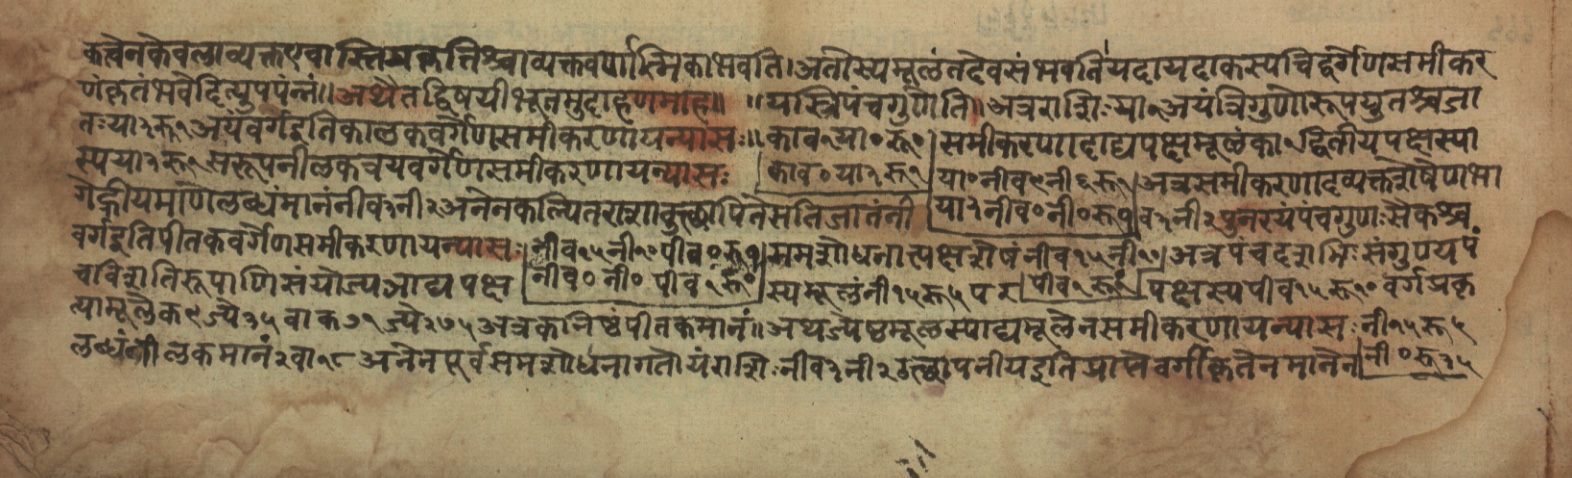 कत्वेनकेवलाव्यक्तएवास्तिप्रकृत्तिश्चाव्यक्तवर्णात्मिकाभवति।अतोस्यमूलंतदेवसंभवतियदायदाकस्यचिद्वर्गेणसमीकर
णंकृतंभवेदित्युपपंन्नं॥अथैतद्विषयीभूतमुदाहणमाह॥ ॥यस्त्रिपंचगुणेति॥अत्रराशिःया१अयंत्रिगुणोरूपयुतश्चजा
तःया३रू१अयंवर्गइतिकालकवर्गेणसमीकरणायन्यासः॥ काव१या०रू० समीकरणादाद्यपक्षमूलंका१द्वितीयपक्षस्या
स्पया३रू१सरूपनीलकत्रयवर्गेणसमीकरणायन्यासः काव०या३रू१ या०नीव९नी६रू१ अत्रसमीकरणादव्यक्तशेषेणभा
गेह्रीयमाणेलब्धंमानंनीव३नी२अनेनकल्पितराशावुत्थापितेसतिजातंनी या३नीव०नी०रू१ व३नी२पुनरयंपंचगुणःसैकश्च
वर्गइतिपीतकवर्गेणसमीकरणायन्यासः नीव१५नी१०पीव०रू१ समशोधनात्पक्षशेषंनीव१५नी१० अत्रपंचदशभिःसंगुण्यपं
चविंशतिरूपाणिसंयोज्यआद्यपक्ष नीव०नी०पीव१रू० स्यमूलंनी१५रू५पर पीव१रू१ पक्षस्यपीव१५रू१०वर्गप्रकृ
त्यामूलेक९ज्ये३५वाक७१ज्ये२७५अत्रकनिष्ठंपीतकमानं॥अथज्येष्ठमूलस्याद्यमूलेनसमीकरणायन्यासःनी१५रू५
लब्धंनीलकमानं२वा१८अनेनपूर्वसमशोधनागतोयंराशिःनीव३नी२उत्थापनीयइतिप्राप्तेवर्गीकृतेनमानेन नी०रू३५